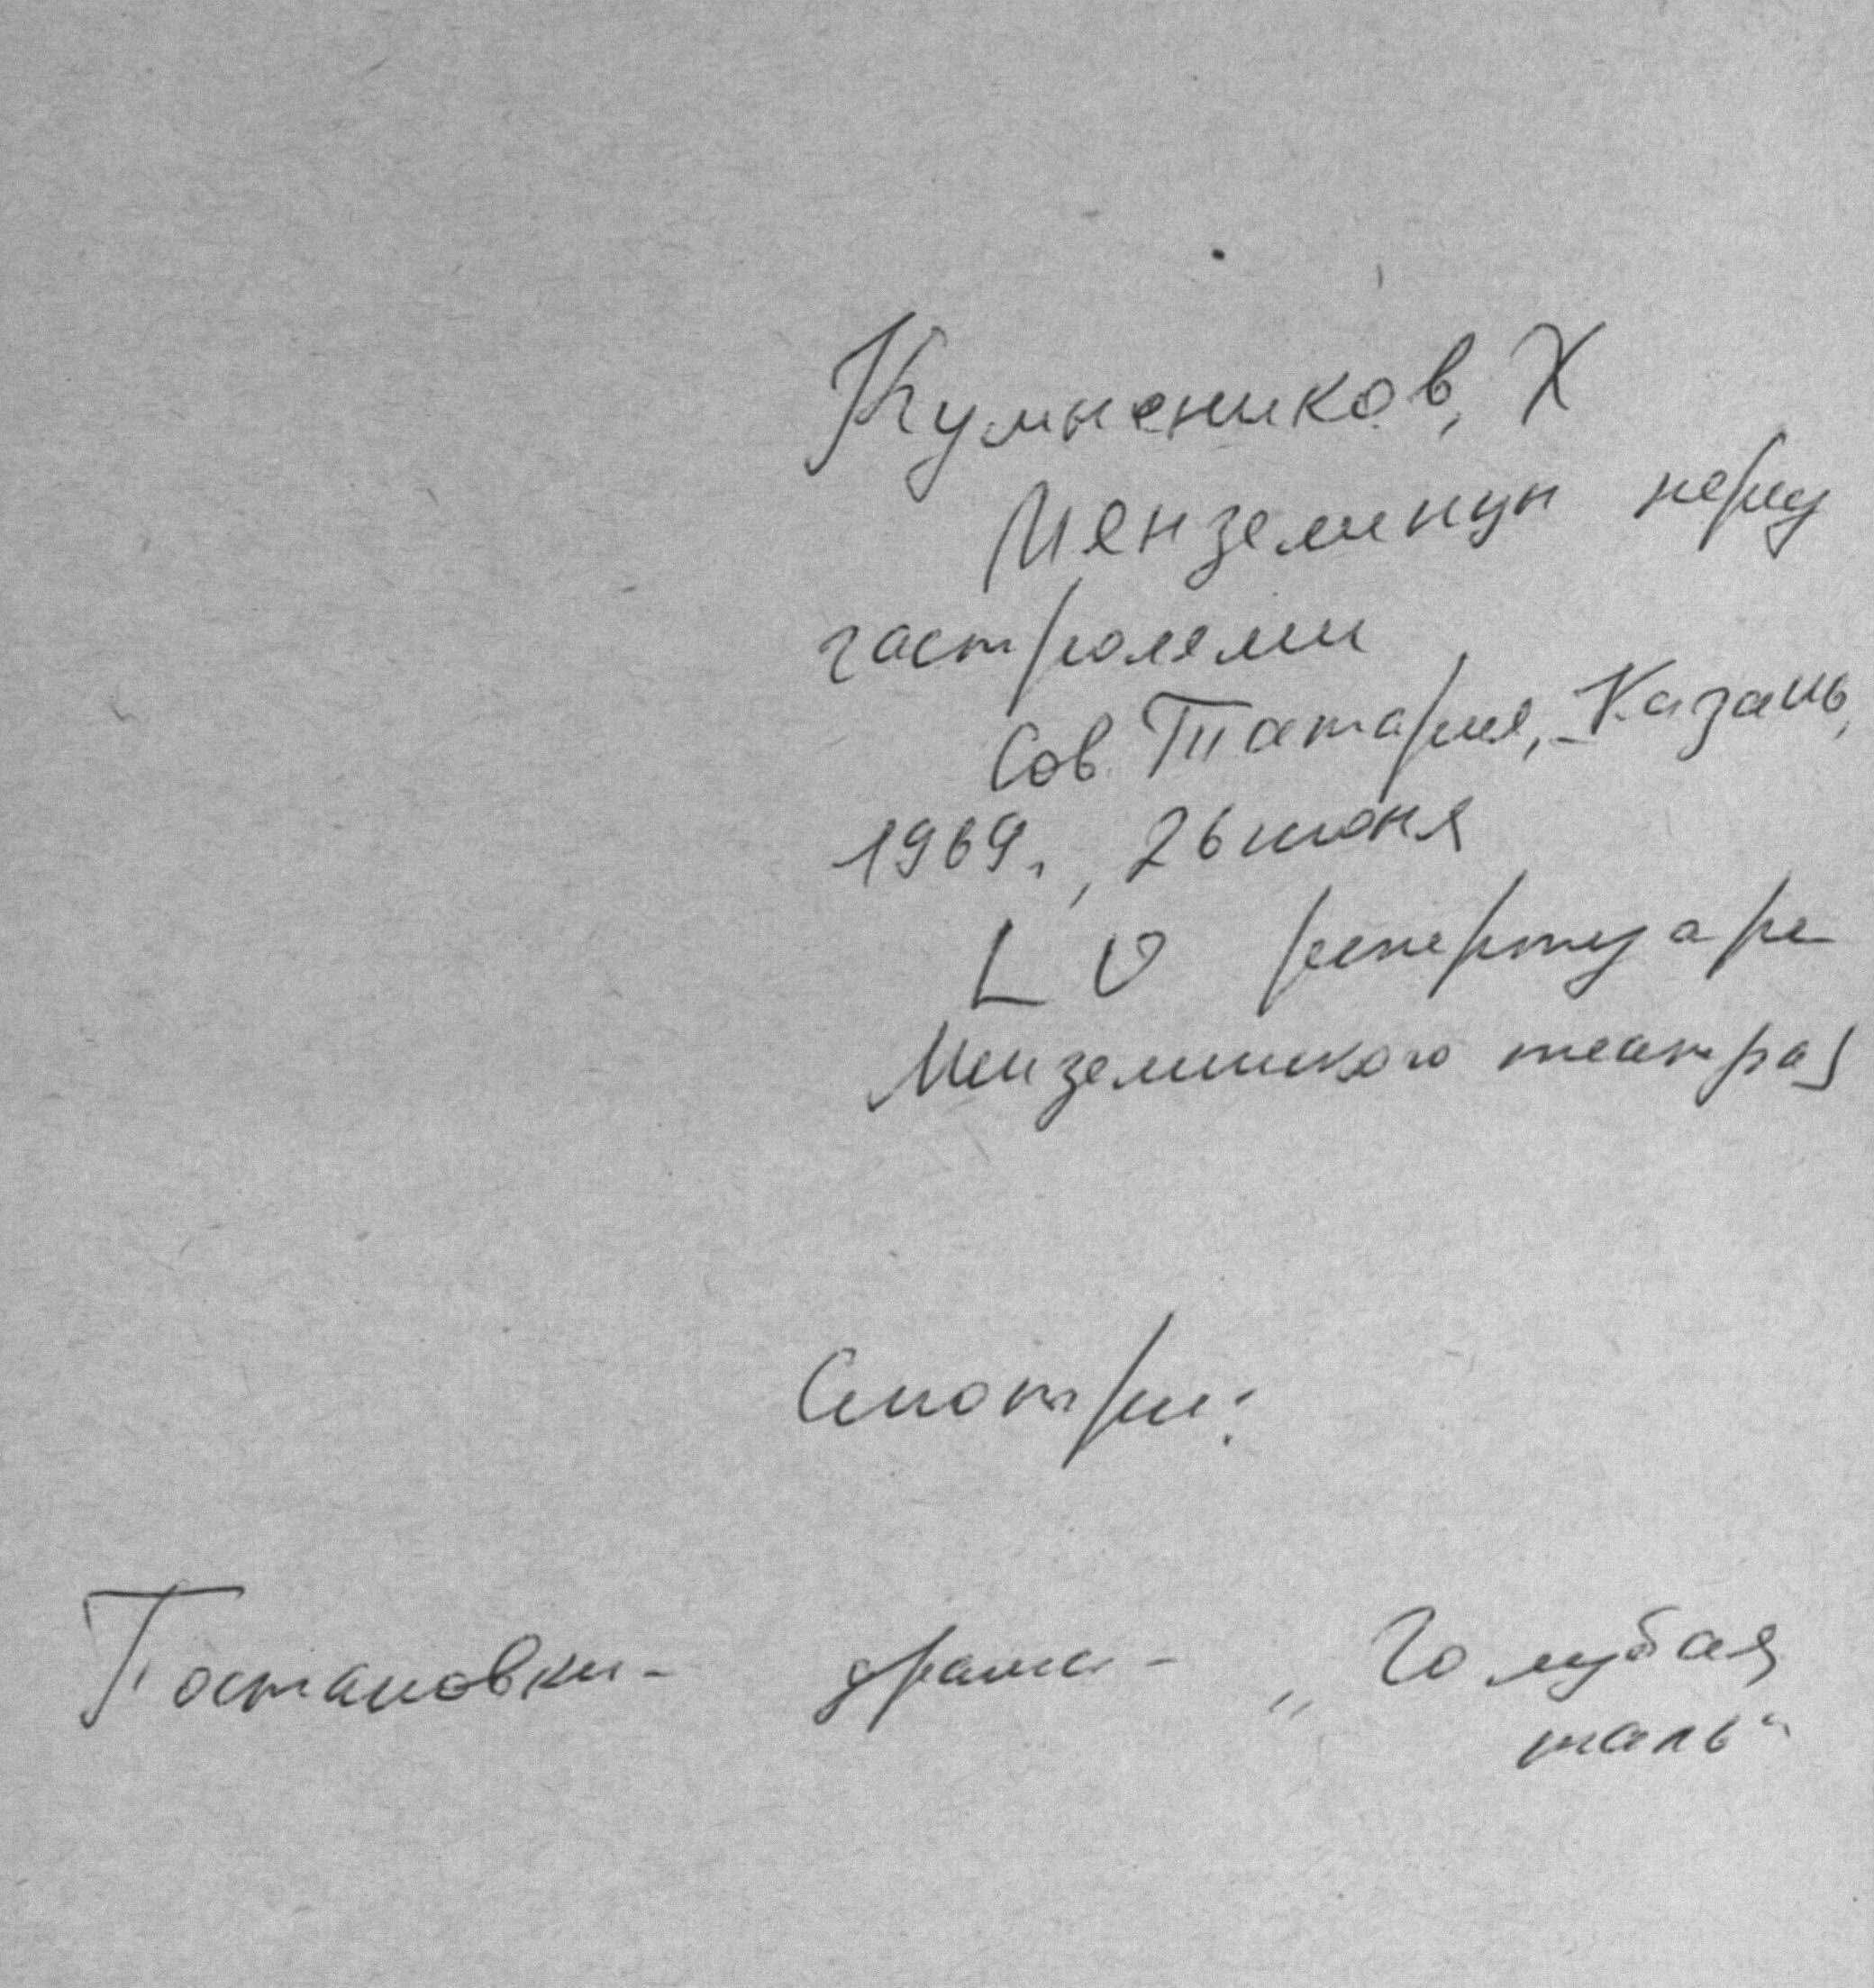 Кумысников, Х
Мензелинцы перед
гастролями
Сов. Татария, Казань,
1969г., 26 июня
[О репертуаре
Мензелинского театра]
Смотри:
Постановки - драма - „Голубая
шаль“